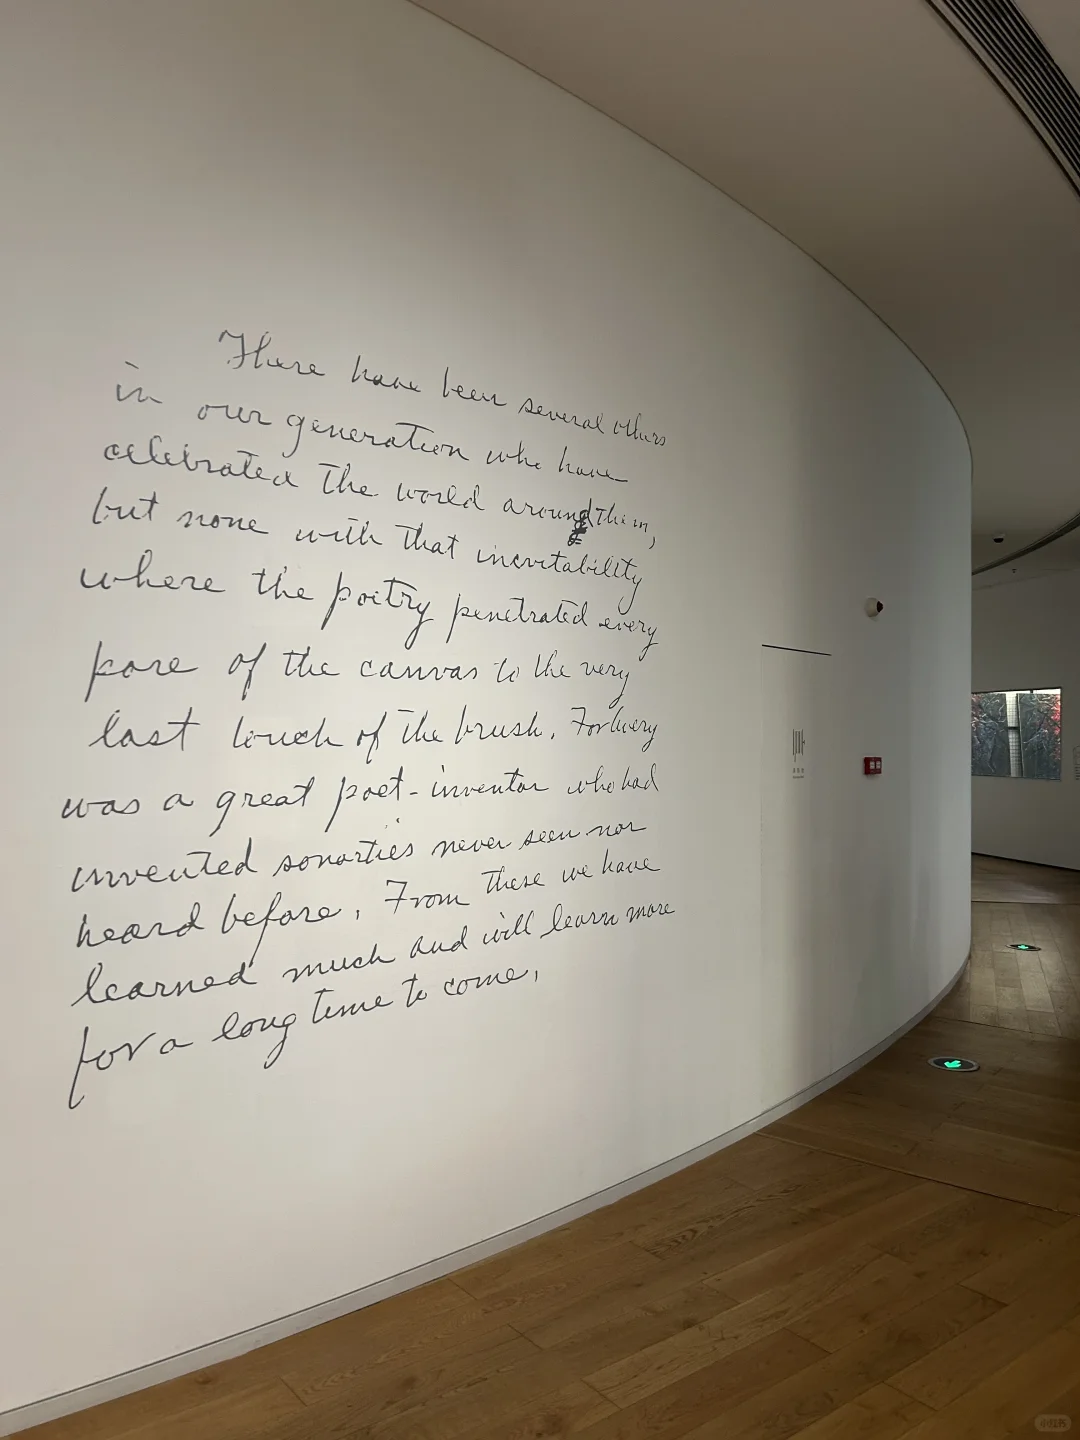 There have been several others
in our generation who have
celebrated the world around them,
but none with that inevitability
where the poetry penetrated every
pore of the canvas to the very
last touch of the brush. For Avery
was a great poet-inventor who had
invented sonorties never seen nor
heard before. From these we have
learned much and will learn more
for a long time to come.
小红书